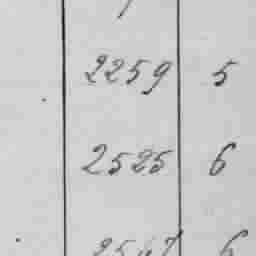 2259 5
2525 6
2547 6